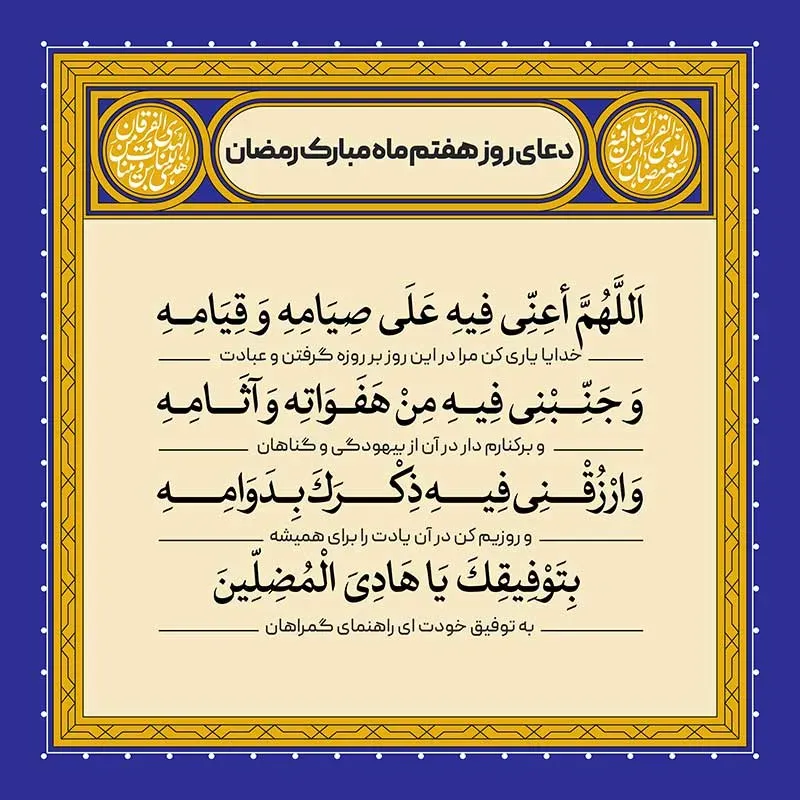 دعای روز هفتم ماه مبارک رمضان
شهر رمضان الذی انزل فیه القرآن
هدی للناس و بینات من الهدی و الفرقان
اَللَّهُمَّ أَعِنِّی فِیهِ عَلَی صِیَامِهِ وَ قِیَامِهِ
خدایا یاری کن مرا در این روز بر روزه گرفتن و عبادت
وَ جَنِّبْنِی فِیهِ مِنْ هَفَوَاتِهِ وَ آثَامِهِ
و برکنارم دار در آن از بیهودگی و گناهان
وَ ارْزُقْنِی فِیهِ ذِکْرَكَ بِدَوَامِهِ
و روزیم کن در آن یادت را برای همیشه
بِتَوْفِیقِكَ یَا هَادِیَ الْمُضِلِّینَ
به توفیق خودت ای راهنمای گمراهان